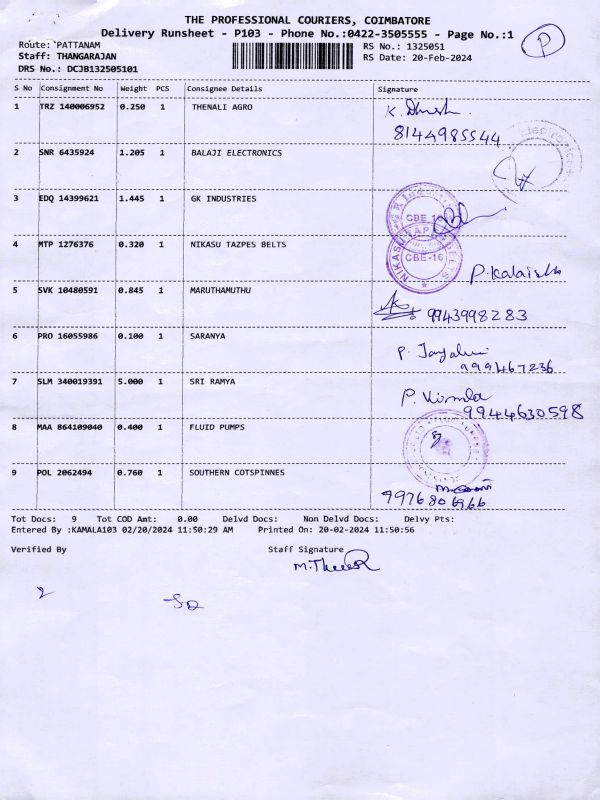 THE PROFESSIONAL COURIERS, COIMBATORE
Delivery Runsheet - P103 - Phone No.:0422-3505555 - Page No.:1
P
Route: PATTANAM
RS No.: 1325051
Staff: THANGARAJAN
RS Date: 20-Feb-2024
DRS No.: DCJB132505101
S No Consignment No Weight PCS Consignee Details Signature
1 TRZ 140006952 0.250 1 THENALI AGRO
8144985544
2 SNR 6435924 1.205 1 BALAJI ELECTRONICS
3 EDQ 14399621 1.445 1 GK INDUSTRIES
4 MTP 1276376 0.320 1 NIKASU TAZPES BELTS
CBE-16
5 SVK 10480591 0.845 1 MARUTHAMUTHU
9943998283
6 PRO 16055986 0.100 1 SARANYA
9994467236
7 SLM 340019391 5.000 1 SRI RAMYA
9944630598
8 MAA 864109040 0.400 1 FLUID PUMPS
9 POL 2062494 0.760 1 SOUTHERN COTSPINNES
9976806966
Tot Docs: 9 Tot COD Amt: 0.00 Delvd Docs: Non Delvd Docs: Delvy Pts:
Entered By :KAMALA103 02/20/2024 11:50:29 AM Printed On: 20-02-2024 11:50:56
Verified By Staff Signature